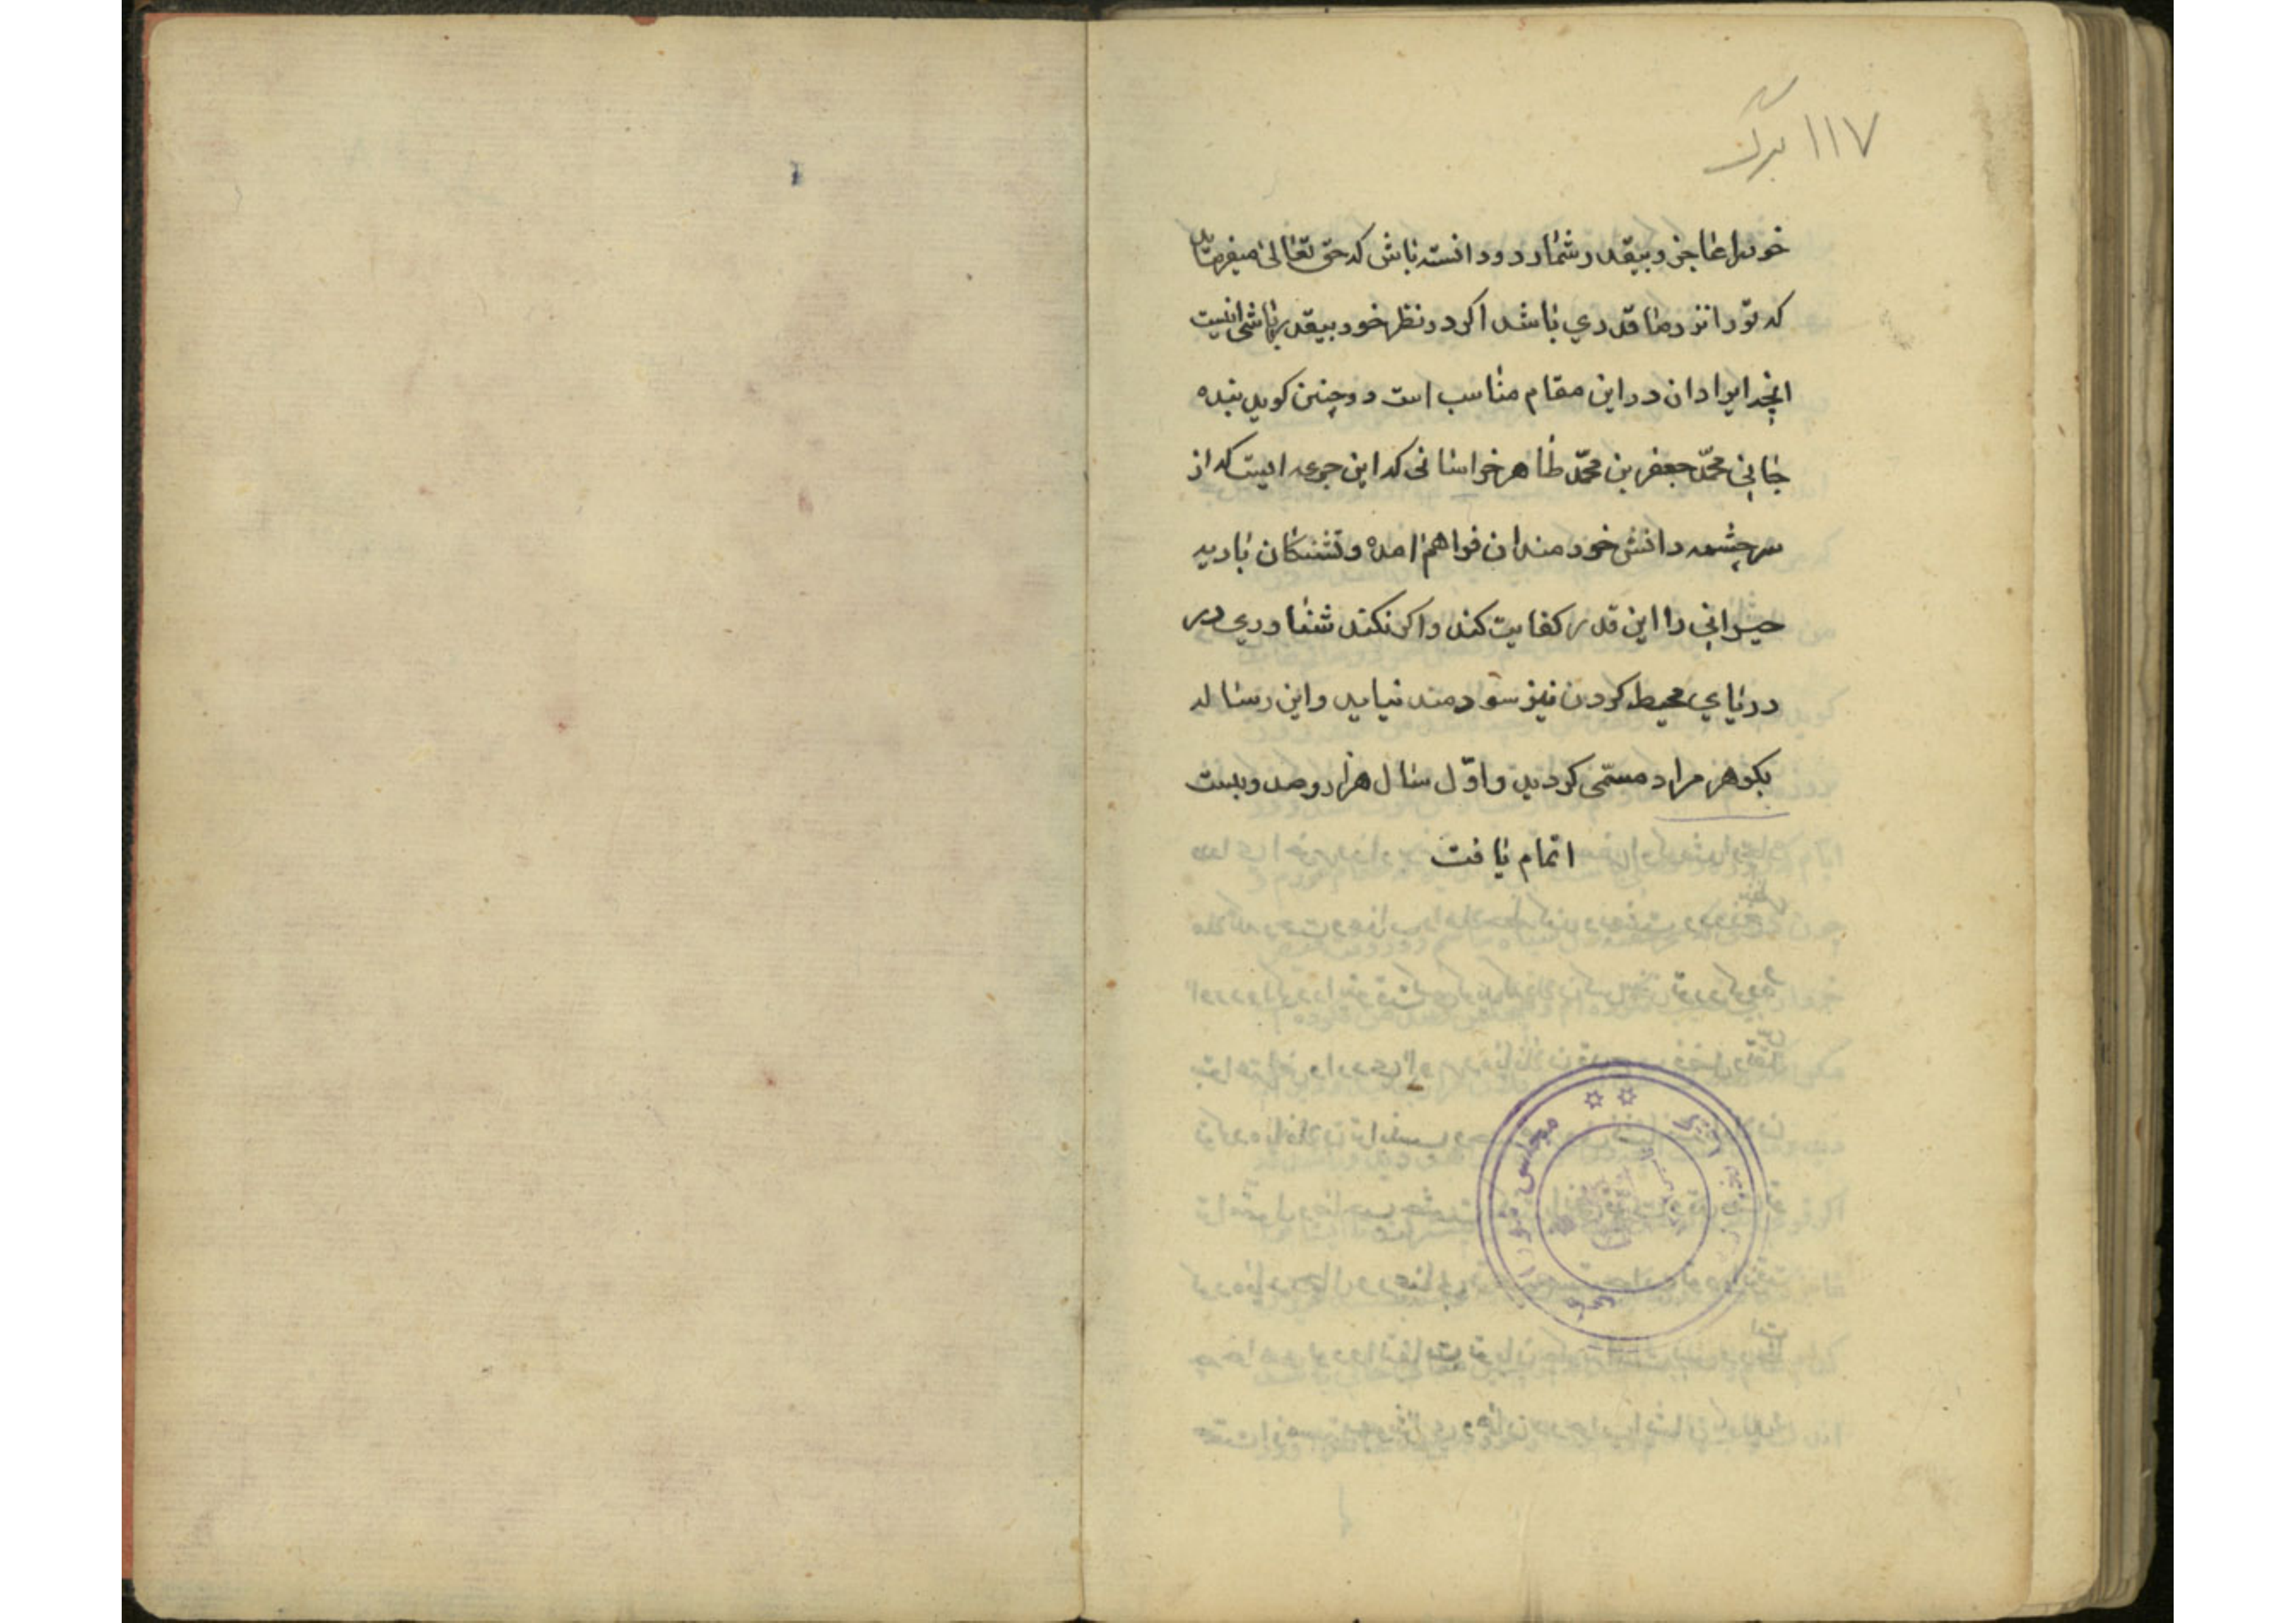 ۱۱۷ برگ
خود را عاجز و بیقدر شمارد و دانسته باش که حق تعالی میفرماید
که تو را نزد ما قدری باشد اکر در نظر خود بیقدر باشی اینست
انچه ایراد ان در این مقام مناسب است و چنین کوید بنده
جانی محمّد جعفر بن محمّد طاهر خراسانی که این جرعه ایست که از
سرچشمه دانش خردمندان فراهم امده و تشنکان بادیه
حیرانی را این قدر کفایت کند و اکر نکند شناوری در
دریای محیط کردن نیز سودمند نیاید و این رساله
بکوهر مراد مسمّی کردید و اوّل سال هزار و صد و بیست
اتمام یافت
مجلس شورای ملی